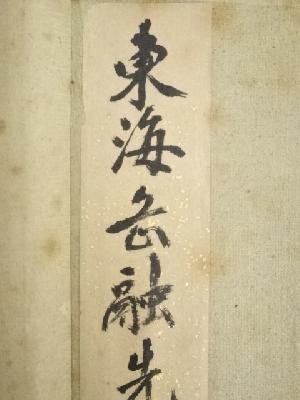 東海岳融先